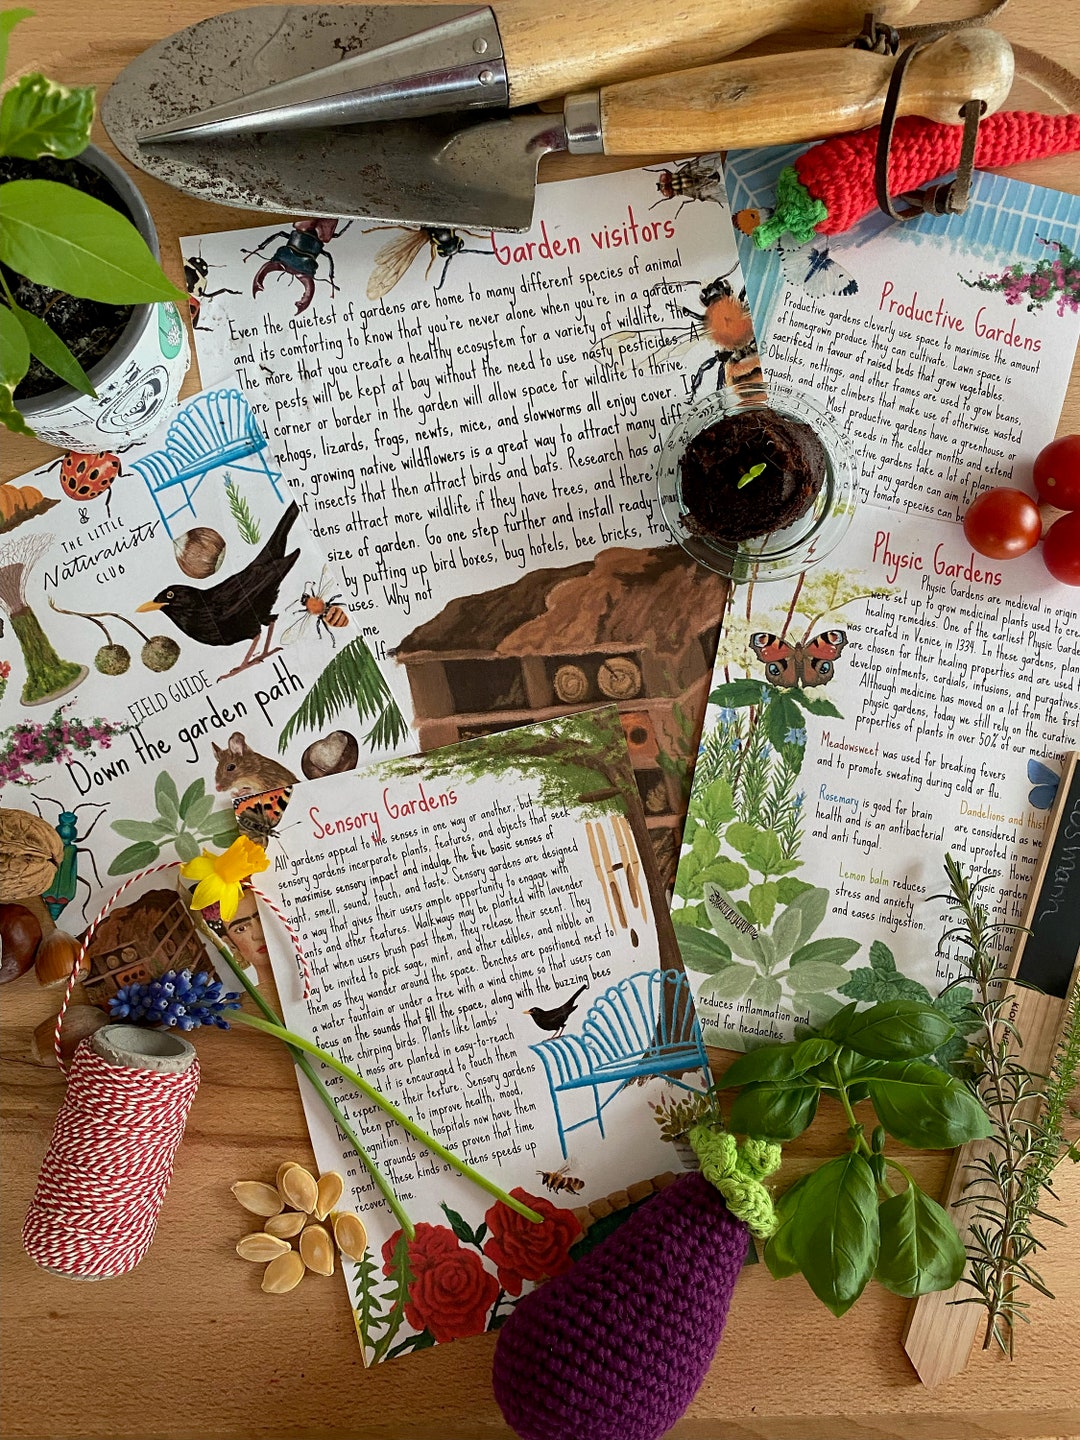 Garden visitors
Even the quietest of gardens are home to many different species of animal
and its comforting to know that you're never alone when you're in a garden.
The more that you create a healthy ecosystem for a variety of wildlife, the
pests will be kept at bay without the need to use nasty pesticides. A
corner or border in the garden will allow space for wildlife to thrive.
lizards, frogs, newts, mice, and slowworms all enjoy cover.
growing native wildflowers is a great way to attract many
of insects that then attract birds and bats. Research has
attract more wildlife if they have trees, and there's
size of garden. Go one step further and install ready-
by putting up bird boxes, bug hotels, bee bricks,
Why not
Productive Gardens
Productive gardens cleverly use space to maximise the amount
of homegrown produce they can cultivate. Lawn space is
sacrificed in favour of raised beds that grow vegetables.
Obelisks, nettings, and other frames are used to grow beans,
squash, and other climbers that make use of otherwise wasted
Most productive gardens have a greenhouse or
seeds in the colder months and extend
gardens take a lot of
but any garden can aim to
tomato species can be
THE LITTLE
Naturalists
CLUB
FIELD GUIDE
Down the garden path
Physic Gardens
Physic Gardens are medieval in origin
were set up to grow medicinal plants used to
healing remedies. One of the earliest Physic
was created in Venice in 1334. In these gardens,
are chosen for their healing properties and are used
develop ointments, cordials, infusions, and purgatives.
Although medicine has moved on a lot from the first
physic gardens, today we still rely on the curative
properties of plants in over 50% of our medicine
Meadowsweet was used for breaking fevers
and to promote sweating during cold or flu.
Rosemary is good for brain
health and is an antibacterial
and anti fungal.
Dandelions and
are considered as
and uprooted in
gardens.
physic garden
Lemon balm reduces
stress and anxiety
and eases indigestion.
reduces inflammation and
good for headaches.
Sensory Gardens
All gardens appeal to the senses in one way or another, but
sensory gardens incorporate plants, features, and objects that seek
to maximise sensory impact and indulge the five basic senses of
sight, smell, sound, touch, and taste. Sensory gardens are designed
a way that gives their users ample opportunity to engage with
and other features. Walkways may be planted with lavender
that when users brush past them, they release their scent. They
may be invited to pick sage, mint, and other edibles, and nibble on
them as they wander around the space. Benches are positioned next to
a water fountain or under a tree with a wind chime so that users can
focus on the sounds that fill the space, along with the buzzing bees
the chirping birds. Plants like lambs'
ears and moss are planted in easy-to-reach
it is encouraged to touch them
their texture. Sensory gardens
been proven to improve health, mood,
hospitals now have them
on their grounds as it was proven that time
spent these kinds of gardens speeds up
recovery time.